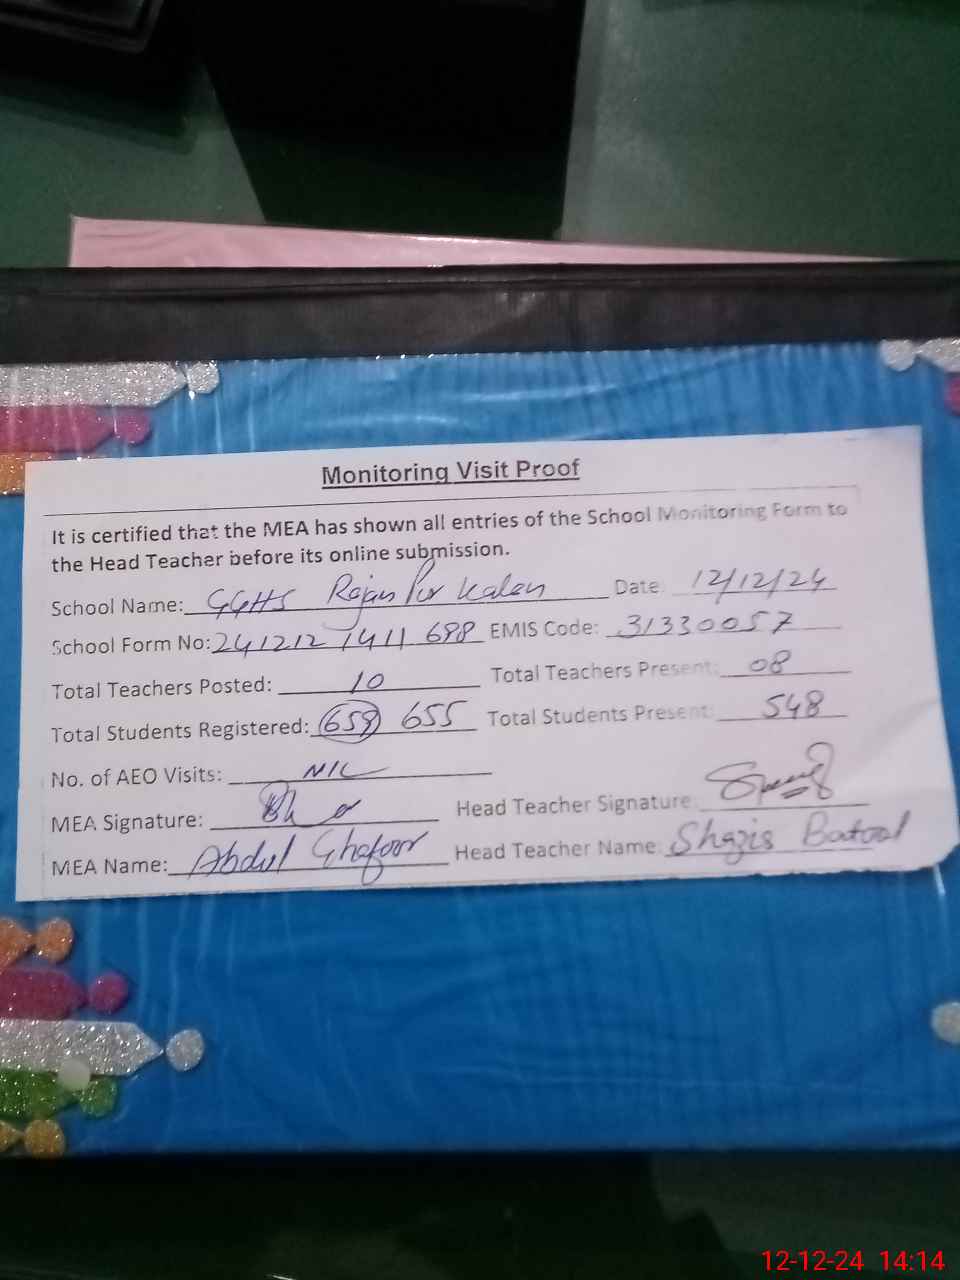 Monitoring Visit Proof
It is certified that the MEA has shown all entries of the School Monitoring Form to
the Head Teacher before its online submission.
School Name: GGHS Rajan Pur Kalan Date: 12/12/24
School Form No: 241212 1411 698 EMIS Code: 31330057
Total Teachers Posted: 10 Total Teachers Present: 08
Total Students Registered: 658 655 Total Students Present: 548
No. of AEO Visits: NIL
MEA Signature: Head Teacher Signature:
MEA Name: Abdul Ghafoor Head Teacher Name: Shazia Batool
12-12-24 14:14